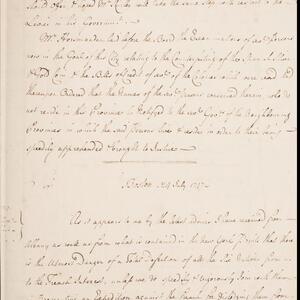 should offer & that Mr. will take the same step with respect to the
Levies in this Government.
Mr. Horsmanden laid before the Board the Examinations of several Persons
now in the Goal of this City relating to the Counterfeiting of the
Gold Coin & the Bills of Credit of several of the Colonies which were read &
thereupon Ordered that the Names of the several Persons concerned therein, who do
not reside in this Province be Notifyed to the several Govrs. of the Neighbouring
Provinces in which the said Persons live & reside in order to their being
speedily apprehended & brought to Justice.
Boston 24 July 1747
As it appears to me by the latest Advices I have received from
Albany as well as from what is contained in the New York Prints that there
is the Utmost Danger of a Total Defection of all the Six Nations from us
to the French Interest, unless we do speedily & vigorously Join with them
in Prosecuting an Expedition against the French for destroying their